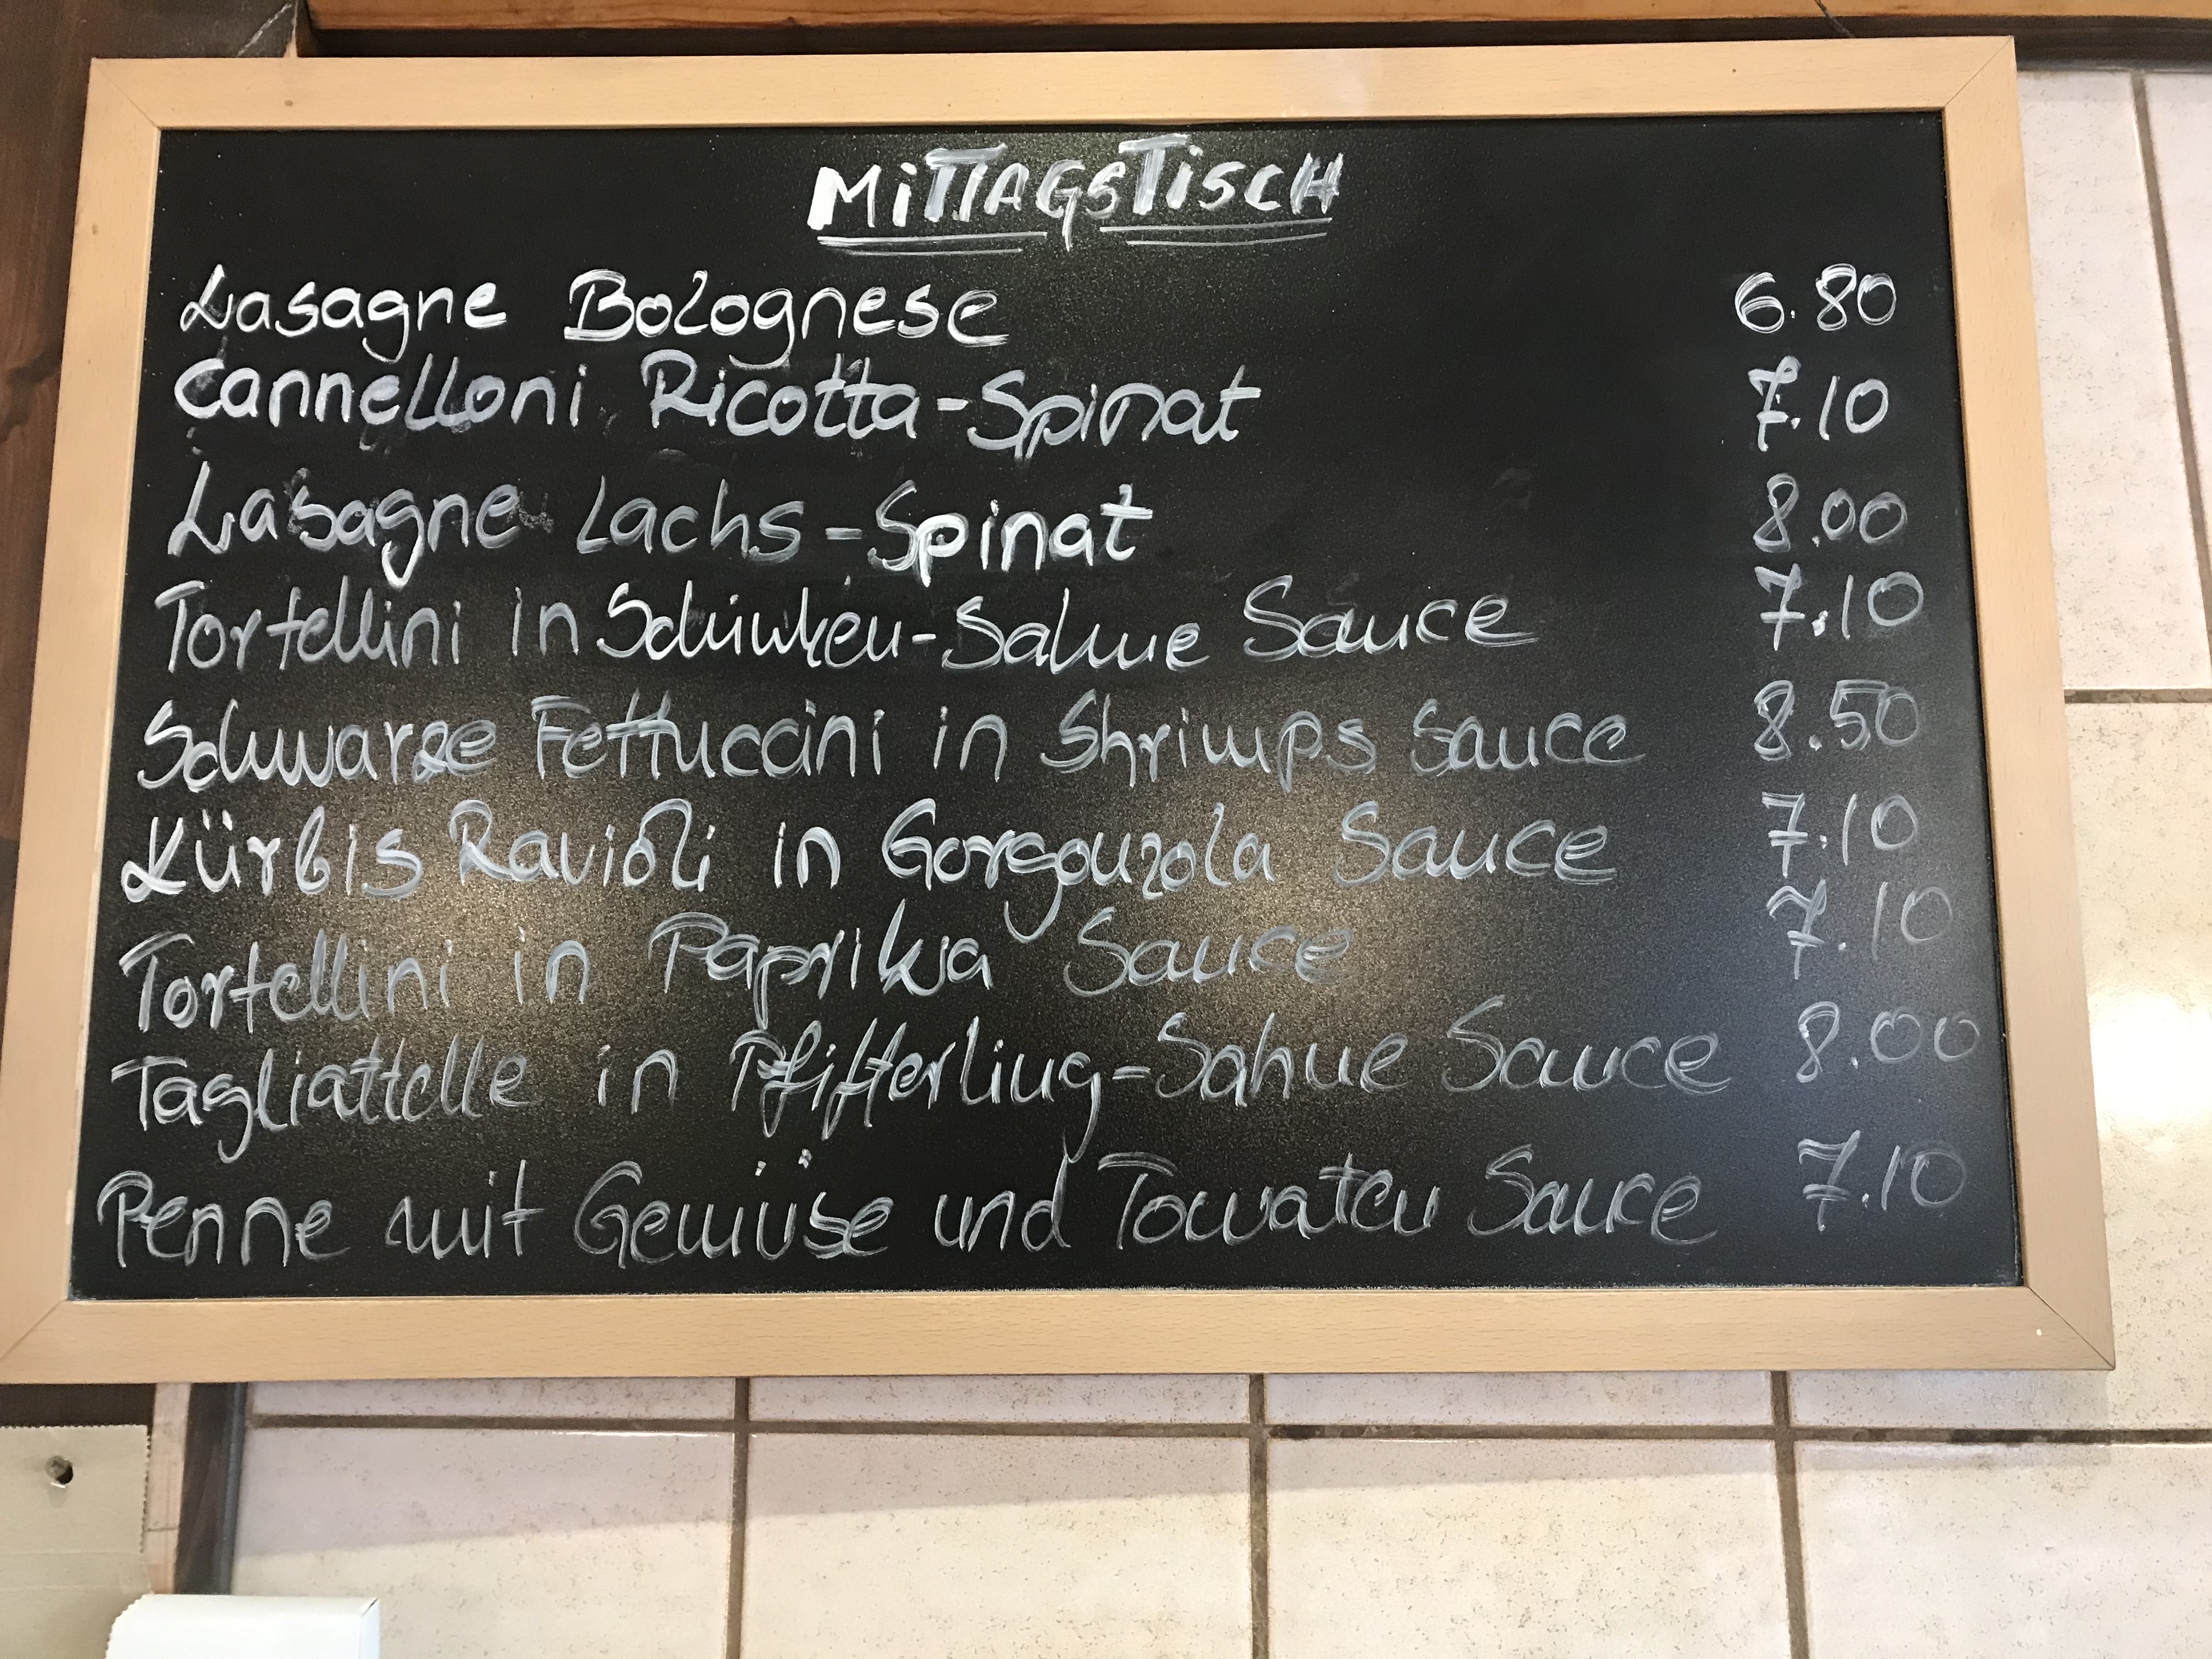 MiTTAGSTiSCH
Lasagne Bolognese 6.80
Cannelloni Ricotta-Spinat 7.10
Lasagne Lachs-Spinat 8.00
Tortellini in Schinken-Sahne Sauce 7.10
Schwarze Fettuccini in Shrimps Sauce 8.50
Kürbis Ravioli in Gorgonzola Sauce 7.10
Tortellini in Paprika Sauce 7.10
Tagliattelle in Pfifferling-Sahne Sauce 8.00
Penne mit Gemüse und Tomaten Sauce 7.10